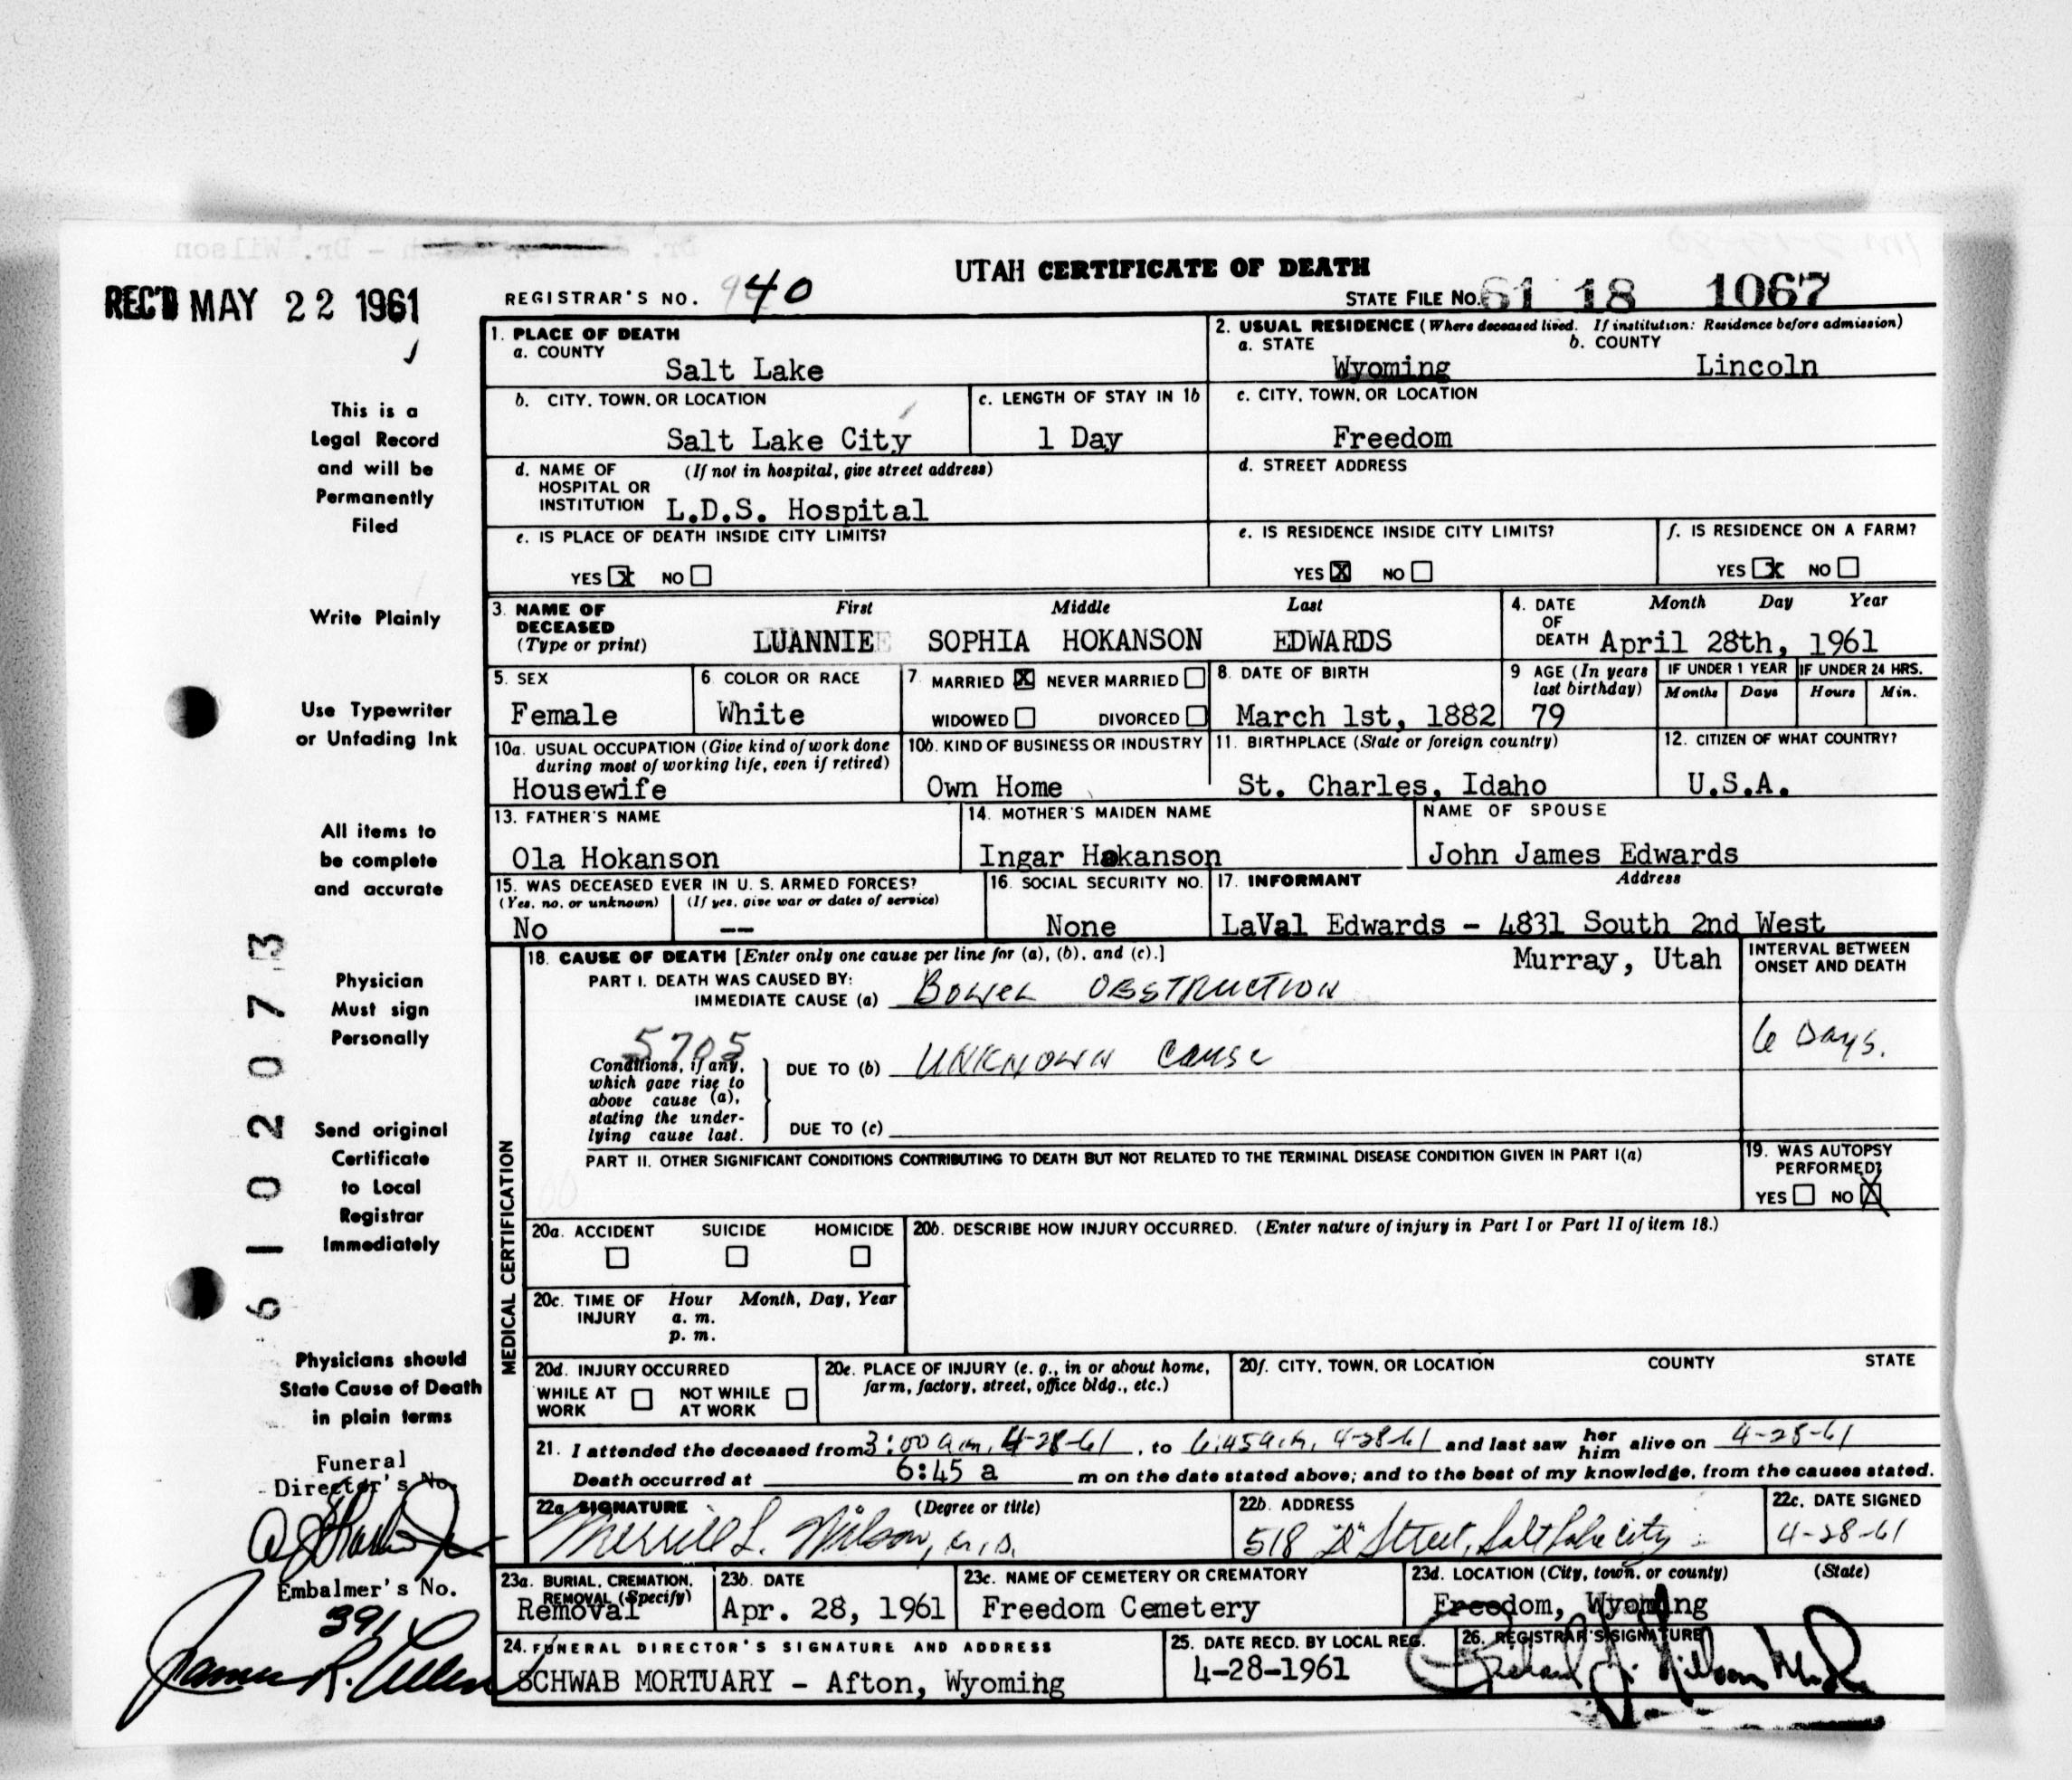 UTAH CERTIFICATE OF DEATH
REC'D MAY 22 1961
REGISTRAR'S NO. 40
STATE FILE NO. 61 18 1067
This is a
Legal Record
and will be
Permanently
Filed
Write Plainly
Use Typewriter
or Unfading Ink
All items to
be complete
and accurate
Physician
Must sign
Personally
Send original
Certificate
to Local
Registrar
Immediately
Physicians should
State Cause of Death
in plain terms
Funeral
Director's No.
Embalmer's No.
391
James R. Allen
61020773
1. PLACE OF DEATH
a. COUNTY
Salt Lake
2. USUAL RESIDENCE (Where deceased lived. If institution: Residence before admission)
a. STATE b. COUNTY
Wyoming Lincoln
b. CITY, TOWN, OR LOCATION
Salt Lake City
c. LENGTH OF STAY IN 1b
1 Day
c. CITY, TOWN, OR LOCATION
Freedom
d. NAME OF (If not in hospital, give street address)
HOSPITAL OR
INSTITUTION L.D.S. Hospital
d. STREET ADDRESS
e. IS PLACE OF DEATH INSIDE CITY LIMITS?
YES x NO
e. IS RESIDENCE INSIDE CITY LIMITS?
YES X NO
f. IS RESIDENCE ON A FARM?
YES x NO
3. NAME OF First Middle Last
DECEASED
(Type or print) LUANNIE SOPHIA HOKANSON EDWARDS
4. DATE Month Day Year
OF
DEATH April 28th, 1961
5. SEX
Female
6. COLOR OR RACE
White
7. MARRIED X NEVER MARRIED
WIDOWED DIVORCED
8. DATE OF BIRTH
March 1st, 1882
9 AGE (In years
last birthday)
79
IF UNDER 1 YEAR IF UNDER 24 HRS.
Months Days Hours Min.
10a. USUAL OCCUPATION (Give kind of work done
during most of working life, even if retired)
Housewife
10b. KIND OF BUSINESS OR INDUSTRY
Own Home
11. BIRTHPLACE (State or foreign country)
St. Charles, Idaho
12. CITIZEN OF WHAT COUNTRY?
U.S.A.
13. FATHER'S NAME
Ola Hokanson
14. MOTHER'S MAIDEN NAME
Ingar Hakanson
NAME OF SPOUSE
John James Edwards
15. WAS DECEASED EVER IN U. S. ARMED FORCES?
(Yes, no, or unknown) (If yes, give war or dates of service)
No --
16. SOCIAL SECURITY NO.
None
17. INFORMANT Address
LaVal Edwards - 4831 South 2nd West
Murray, Utah
18. CAUSE OF DEATH [Enter only one cause per line for (a), (b), and (c).]
PART I. DEATH WAS CAUSED BY:
IMMEDIATE CAUSE (a) Bowel OBSTRUCTION
INTERVAL BETWEEN
ONSET AND DEATH
6 Days.
5705
Conditions, if any,
which gave rise to
above cause (a),
stating the under-
lying cause last.
DUE TO (b) UNKNOWN Cause
DUE TO (c)
PART II. OTHER SIGNIFICANT CONDITIONS CONTRIBUTING TO DEATH BUT NOT RELATED TO THE TERMINAL DISEASE CONDITION GIVEN IN PART I(a)
19. WAS AUTOPSY
PERFORMED?
YES NO X
MEDICAL CERTIFICATION
20a. ACCIDENT SUICIDE HOMICIDE
20b. DESCRIBE HOW INJURY OCCURRED. (Enter nature of injury in Part I or Part II of item 18.)
20c. TIME OF Hour Month, Day, Year
INJURY a. m.
p. m.
20d. INJURY OCCURRED
WHILE AT NOT WHILE
WORK AT WORK
20e. PLACE OF INJURY (e. g., in or about home,
farm, factory, street, office bldg., etc.)
20f. CITY, TOWN, OR LOCATION COUNTY STATE
21. I attended the deceased from 3:00 a.m. 4-28-61, to 6:45 a.m. 4-28-61 and last saw her him alive on 4-28-61
Death occurred at 6:45 a m on the date stated above; and to the best of my knowledge, from the causes stated.
22a. SIGNATURE (Degree or title)
Merrill L. Wilson, M.D.
22b. ADDRESS
518 "D" Street, Salt Lake City
22c. DATE SIGNED
4-28-61
23a. BURIAL, CREMATION,
REMOVAL (Specify)
Removal
23b. DATE
Apr. 28, 1961
23c. NAME OF CEMETERY OR CREMATORY
Freedom Cemetery
23d. LOCATION (City, town, or county) (State)
Freedom, Wyoming
24. FUNERAL DIRECTOR'S SIGNATURE AND ADDRESS
SCHWAB MORTUARY - Afton, Wyoming
25. DATE RECD. BY LOCAL REG.
4-28-1961
26. REGISTRAR'S SIGNATURE